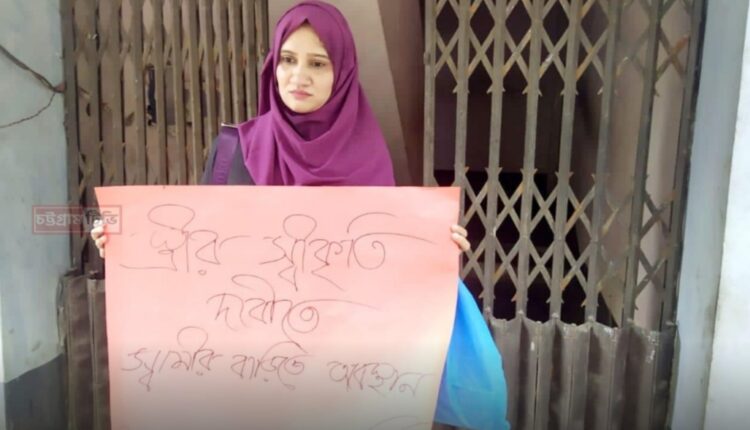 চট্টগ্রাম টিভি
স্ত্রীর স্বীকৃতি
দাবীতে
স্বামীর বাড়িতে অবস্থান